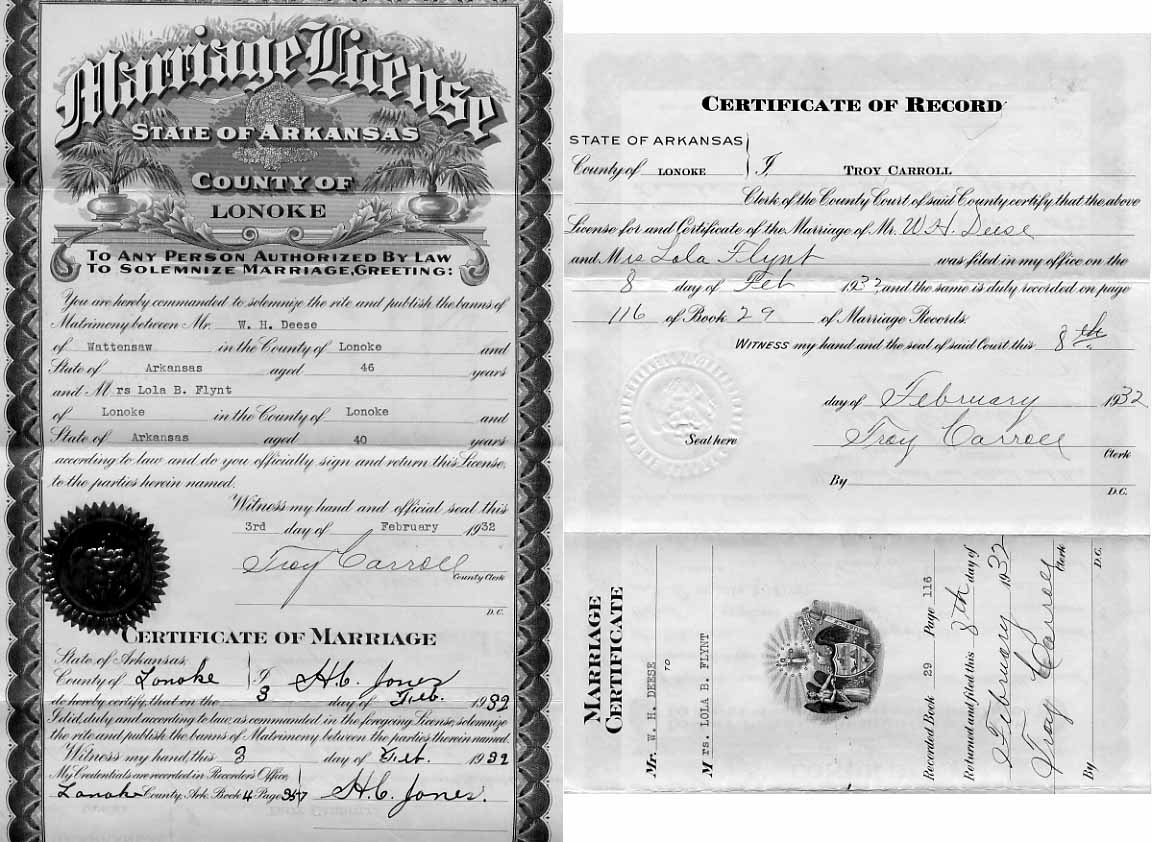 Marriage License
STATE OF ARKANSAS
COUNTY OF
LONOKE
TO ANY PERSON AUTHORIZED BY LAW
TO SOLEMNIZE MARRIAGE, GREETING:
You are hereby commanded to solemnize the rite and publish the banns of
Matrimony between Mr. W. H. Deese
of Wattensaw in the County of Lonoke and
State of Arkansas aged 46 years
and Mrs Lola B. Flynt
of Lonoke in the County of Lonoke and
State of Arkansas aged 40 years
according to law and do you officially sign and return this License,
to the parties herein named.
Witness my hand and official seal this
3rd day of February 1932
Troy Carroll
County Clerk
D.C.
CERTIFICATE OF MARRIAGE
State of Arkansas,
County of Lonoke } I, H.C. Jones
do hereby certify, that on the 3 day of Feb. 1932
I did, duly and according to law, as commanded in the foregoing License, solemnize
the rite and publish the banns of Matrimony between the parties therein named.
Witness my hand, this 3 day of Feb. 1932
My Credentials are recorded in Recorder's Office,
Lonoke County, Ark. Book 4 Page 357 } H.C. Jones.
CERTIFICATE OF RECORD
STATE OF ARKANSAS
County of LONOKE } I, TROY CARROLL
Clerk of the County Court of said County certify, that the above
License for and Certificate of the Marriage of Mr. W H. Deese
and Mrs Lola Flynt was filed in my office on the
8 day of Feb 1932, and the same is duly recorded on page
116 of Book 29 of Marriage Records.
WITNESS my hand and the seal of said Court this 8th
day of February 1932
Seal here Troy Carroll
Clerk
By
D.C.
MARRIAGE
CERTIFICATE
Mr. W. H. DEESE
TO
Mrs. LOLA B. FLYNT
Recorded Book 29 Page 116
Returned and filed this 8th day of
February 1932
Troy Carroll
Clerk
By
D.C.